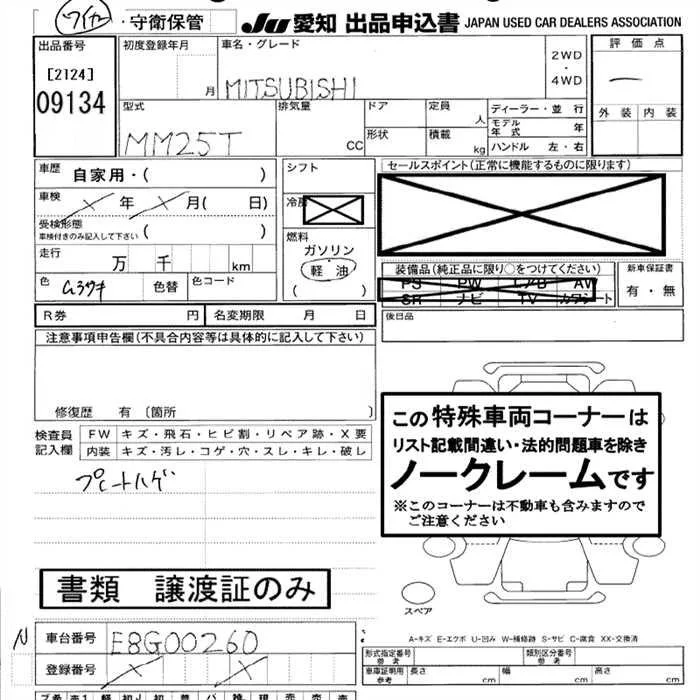 ワイヤー・守衛保管
JU 愛知 出品申込書 JAPAN USED CAR DEALERS ASSOCIATION
出品番号
[2124]
09134
初度登録年月
月
車名・グレード
MITSUBISHI
2WD
・
4WD
評価点
外装 内装
型式
MM25T
排気量
CC
ドア
形状
定員
人
積載
kg
ディーラー・並 行
モデル年式 年
ハンドル 左・右
車歴 自家用・( )
車検 年 月( 日)
受検形態
車検付きのみ記入して下さい ( )
走行 万 千 km
色
色替
色コード
シフト
冷房
燃料
ガソリン
軽油
( )
セールスポイント(正常に機能するものに限ります)
装備品(純正品に限り○をつけてください)
PS PW エアB AW
SR ナビ TV カワシート
新車保証書
有・無
R券 円
名変期限 月 日
後日品
注意事項申告欄(不具合内容等は具体的に記入して下さい)
修復歴 有〔箇所 〕
検査員記入欄
FW キズ・飛石・ヒビ割・リペア跡・X要
内装 キズ・汚レ・コゲ・穴・スレ・キレ・破レ
プレートハゲ
この特殊車両コーナーは
リスト記載間違い・法的問題車を除き
ノークレームです
※このコーナーは不動車も含みますので
ご注意ください
書類 譲渡証のみ
スペア
N
車台番号 E8G00260
登録番号
A-キズ E-エクボ U-凹み W-補修跡 S-サビ C-腐食 XX-交換済
形式指定番号
参考
類別区分番号
参考
車庫証明用
参考
長さ cm
幅 cm
高さ cm